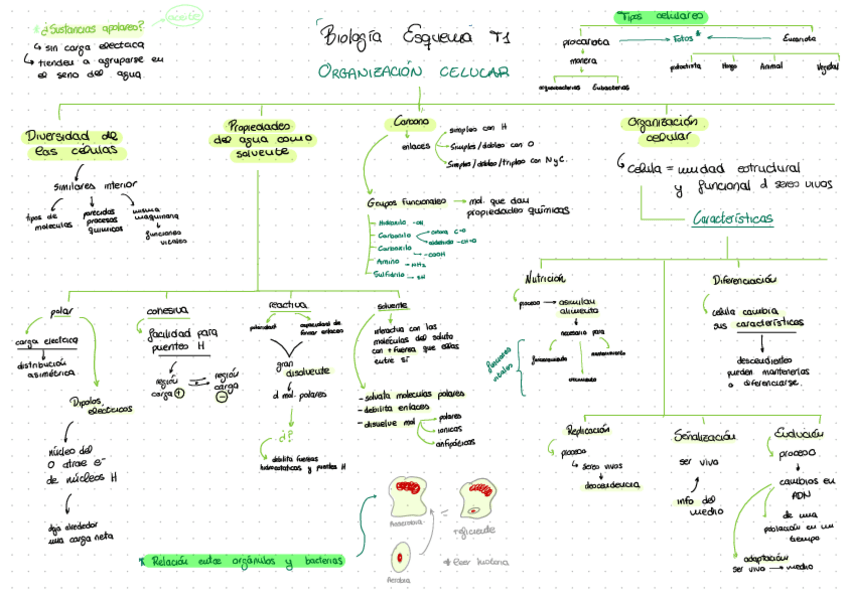 ¿Sustancias apolares?
aceite
↳ sin carga electrica
↳ tienden a agruparse en
el seno del agua.
Biología Esquema T1
ORGANIZACIÓN CELULAR
Tipos celulares
procariota
Eucariota
Fotos *
manera
arqueobacterias
Eubacterias
protoctista
Hongo
Animal
Vegetal
Diversidad de
las células
Similares interior
tipos de
moleculas
parecidos
procesos
químicos
misma
maquinaria
funciones
vitales
Propiedades
del agua como
solvente
Carbono
enlaces
simples con H
Simples/dobles con O
Simples/dobles/triples con N y C.
Grupos Funcionales → mol. que dan
propiedades químicas
Hidroxilo -OH
Carbonilo
cetona C=O
aldehído -CH=O
Carboxilo
-COOH
Amino -NH2
Sulfidrilo → SH
Organización
celular
célula = unidad estructural
y funcional d seres vivos
Características
Nutrición
proceso → asimilan
alimento
necesario para
funcionamiento
mantenimiento
crecimiento
funciones
vitales
Diferenciación
célula cambia
sus características
descendientes
pueden mantenerlas
o diferenciarse.
polar
carga electrica
distribución
asimétrica.
Dipolos
electricos
núcleo del
O atrae e-
de núcleos H
deja alrededor
una carga neta
cohesiva
facilidad para
puentes H
región
carga +
región
carga
-
reactiva
polaridad
capacidad de
formar enlaces
gran
disolvente
d mol. polares
¿?
debilita fuerzas
hidrostáticas y puentes H
solvente
interactua con las
moléculas del soluto
con + fuerza que ellas
entre sí
- solvata moléculas polares
- debilita enlaces
- disuelve mol
polares
ionicas
anfipáticas
Replicación
proceso
↳ seres vivos
descendencia
Señalización
ser vivo
info del
medio
Evolución
proceso
cambios en
ADN
de una
población en un
tiempo
adaptación
ser vivo → medio
Anaerobia
Aerobia
+ eficiente
* Leer historia
* Relación entre orgánulos y bacterias